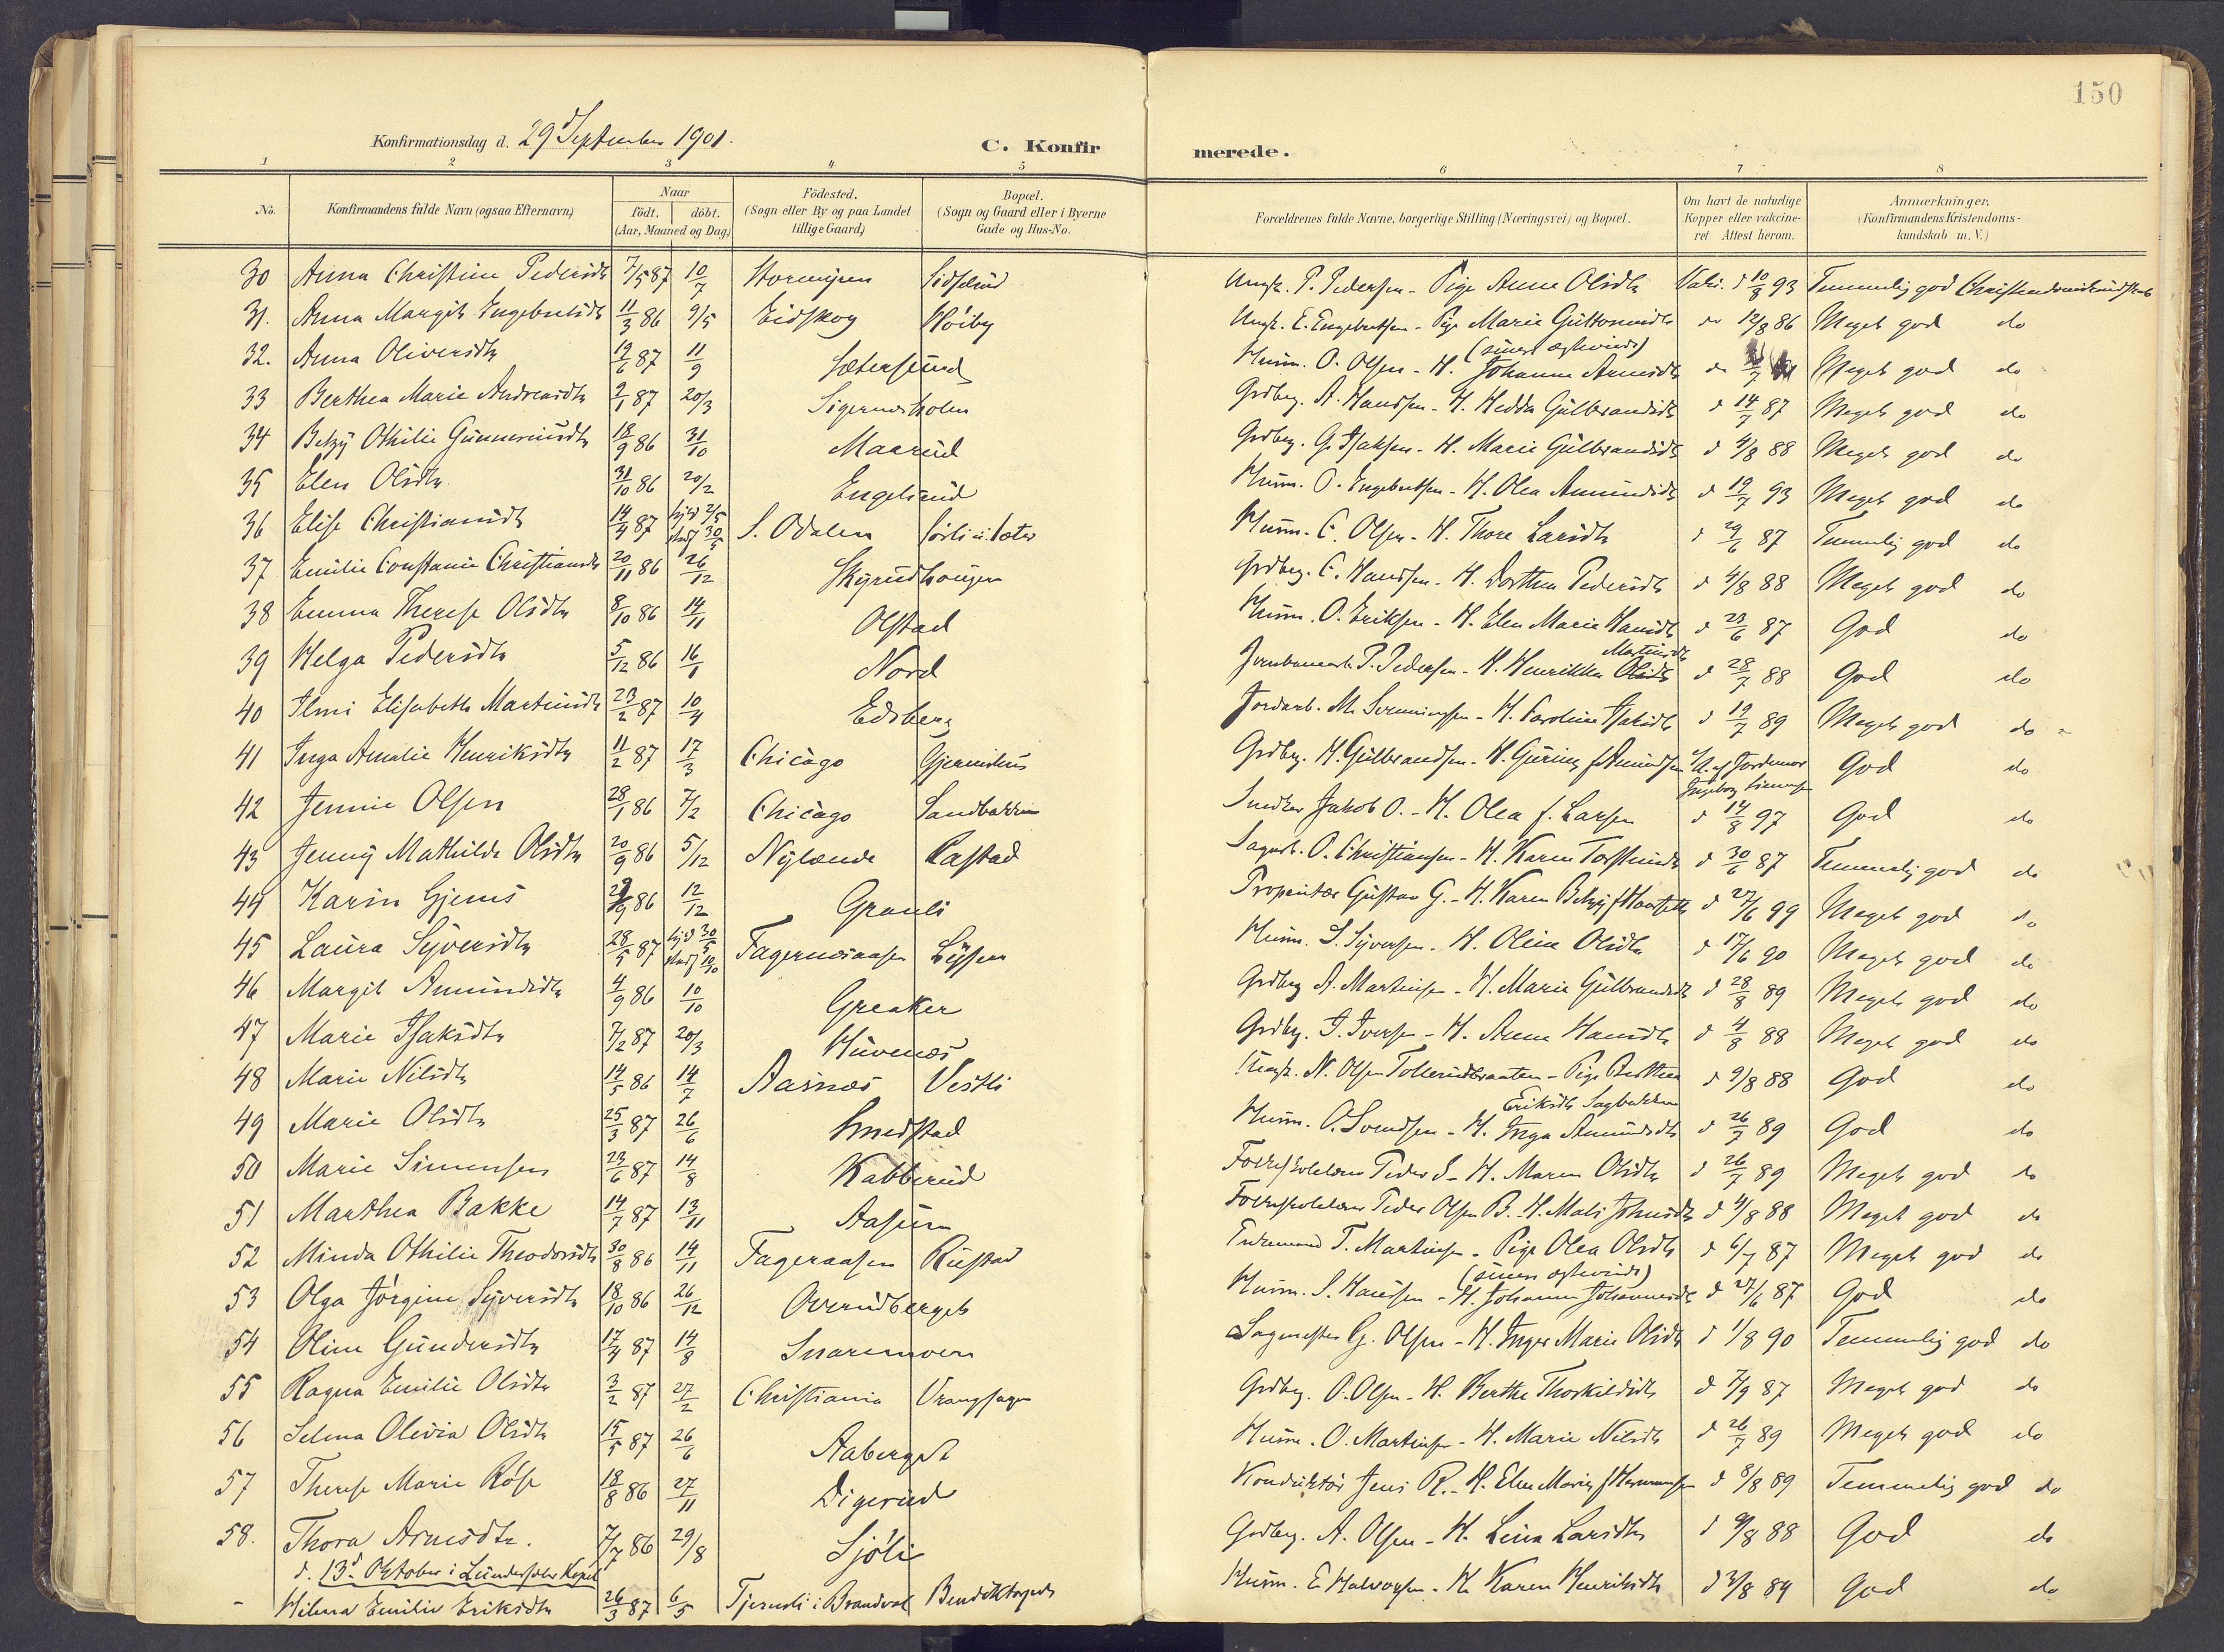 150
Konfirmationsdag d. 29d September 1901.
C. Konfirmerede.
1 2 3 4 5 6 7 8
No. Konfirmandens fulde Navn (ogsaa Efternavn) Naar født. døbt. (Aar, Maaned og Dag) Födested. (Sogn eller By og paa Landet tillige Gaard) Bopæl. (Sogn og Gaard eller i Byerne Gade og Hus-No. Forældrenes fulde Navne, borgerlige Stilling (Næringsvei) og Bopæl. Om havt de naturlige Kopper eller vakcineret Attest herom. Anmærkninger. (Konfirmandens Kristendomskundskab m. V.)
30 Anna Christine Pedersdtr 7/5 87 10/7 Stormyren Sidselrud Ungk. P. Pedersen - Pige Anne Olsdtr Vakc. d 10/8 93 Temmelig god Christendomskundskab
31. Anna Margit Engebretsdtr 11/3 86 9/5 Eidskog Høiby Ungk. E. Engebretsen - Pige Marie Guttormsdtr do 12/8 86 Meget god do
32. Anna Oliversdtr 19/6 87 11/9 Sætersund Husm. O. Olsen - H. Johanne Arnesdtr do Meget god do
33 Berthea Marie Andreasdtr 2/1 87 20/3 Sigernesholen Grdbrg. A. Hansen - H. Hedda Gulbrandsdtr d 14/7 87 Meget god do
34 Betzy Othilie Gunneriusdtr 18/9 86 31/10 Maarud Grdbrg. G. Isaksen - H. Marie Gulbrandsdtr d 4/8 88 Meget god do
35 Elen Olsdtr 31/10 86 20/2 Engelsrud Husm. O. Engebretsen - H. Olea Amundsdtr d 19/7 93 Meget god do
36 Elise Christiansdtr 14/4 87 hjd 2/5 stadf 30/5 S. Odalen Sørli u. Sæter Husm. C. Olsen - H. Thore Larsdtr d 29/6 87 Temmelig god do
37 Emilie Constanse Christiansdtr 20/11 86 26/12 Skyrudhougen Grdbrg. C. Hansen - H. Dorthea Pedersdtr d 4/8 88 Meget god do
38 Emma Therese Olsdtr 8/10 86 14/11 Olstad Husm. O. Eriksen - H. Elen Marie Hansdtr d 23/6 87 God do
39 Helga Pedersdtr 5/12 86 16/1 Nord Jernbanearb. P. Pedersen - H. Henrikke Martinsdtr d 28/7 88 God do
40 Ilmi Elisabeth Martinsdtr 23/2 87 10/4 Edsberg Jordarb. M. Svenningsen - H. Caroline Isaksdtr d 19/7 89 Meget god do
41 Inga Amalie Henriksdtr 11/2 87 17/3 Chicago Gjermshus Grdbrg. H. Gulbrandsen - H. Guring f Amundsen God do
42 Jennie Olsen 28/1 86 7/2 Chicago Sandbakken Snedker Jakob O. - H. Olea f. Larsen d 14/8 97 God do
43 Jenny Mathilde Olsdtr 20/9 86 5/12 Nylænde Rastad Sagarb. O. Christiansen - H. Karen Torstensdtr d 30/6 87 Temmelig god do
44 Karin Gjems 29/9 86 12/12 Granli Proprietær Gustav G. - H. Karen Betzy f d 27/6 99 Meget god do
45 Laura Syversdtr 28/5 87 hjd 30/5 stadf 10/10 Fagernesaasen Lysen Husm. S. Syversen - H. Oline Olsdtr d 17/6 90 Meget god do
46 Margit Amundsdtr 4/9 86 10/10 Greaker Grdbrg A. Martinsen - H. Marie Gulbrandsdtr d 28/8 89 Meget god do
47 Marie Isaksdtr 7/2 87 20/3 Huvenes Grdbrg. I. Iversen - H. Anne Hansdtr d 4/8 88 Meget god do
48 Marie Nilsdtr 14/5 86 14/7 Aasnes Vestli Ungk. N. Olsen Tollerudbraaten - Pige Berthea Eriksdtr Sagbakken d 9/8 88 God do
49 Marie Olsdtr 25/3 87 26/6 Smedstad Husm. O. Svendsen - H. Inga Amundsdtr d 26/7 89 God do
50 Marie Simensen 23/6 87 14/8 Kabberud Folkeskolelærer Peder S - H. Maren Olsdtr d 26/7 89 Meget god do
51 Marthea Bakke 14/7 87 13/11 Aasum Folkeskolelærer Peder Olsen B. H. Mali Johnsdtr d 4/8 88 Meget god do
52 Minda Othilie Theodorsdtr 30/8 86 14/11 Fageraasen Rustad T. Martinsen - Pige Olea Olsdtr d 6/7 87 Meget god do
53 Olga Jørgine Syversdtr 18/10 86 26/12 Overudberget Husm. S. Hansen - H. Johanne Johannesdtr d 27/6 87 God do
54 Oline Gundersdtr 17/4 87 14/8 Snaremoen Sagmester G. Olsen - H. Inger Marie Olsdtr d 1/8 90 Temmelig god do
55 Ragna Emilie Olsdtr 3/2 87 27/2 Christiania Vrangsagen Grdbrg. O. Olsen - H. Berthe Thorkildsdtr d 7/9 87 Meget god do
56 Selma Olivia Olsdtr 15/5 87 26/6 Aaberget Husm. O. Martinsen - H. Marie Nilsdtr d 26/7 89 Meget god do
57 Therese Marie Røse 18/8 86 27/11 Digerud Konduktør Jens R. - H. Elen Marie f Hermansen d 8/8 89 Temmelig god do
58. Thora Arnesdtr. 7/7 86 29/8 Sjøli Grdbrg. A. Olsen - H. Lina Larsdtr d 9/8 88 God do
d. 13d Oktober i Lundersæter Kapel
- Hilma Emilie Eriksdtr 26/3 87 6/5 Tjernsli i Brandval Bendiktorpet Husm. E Halvorsen - H. Karen Henriksdtr d 3/8 89 God do